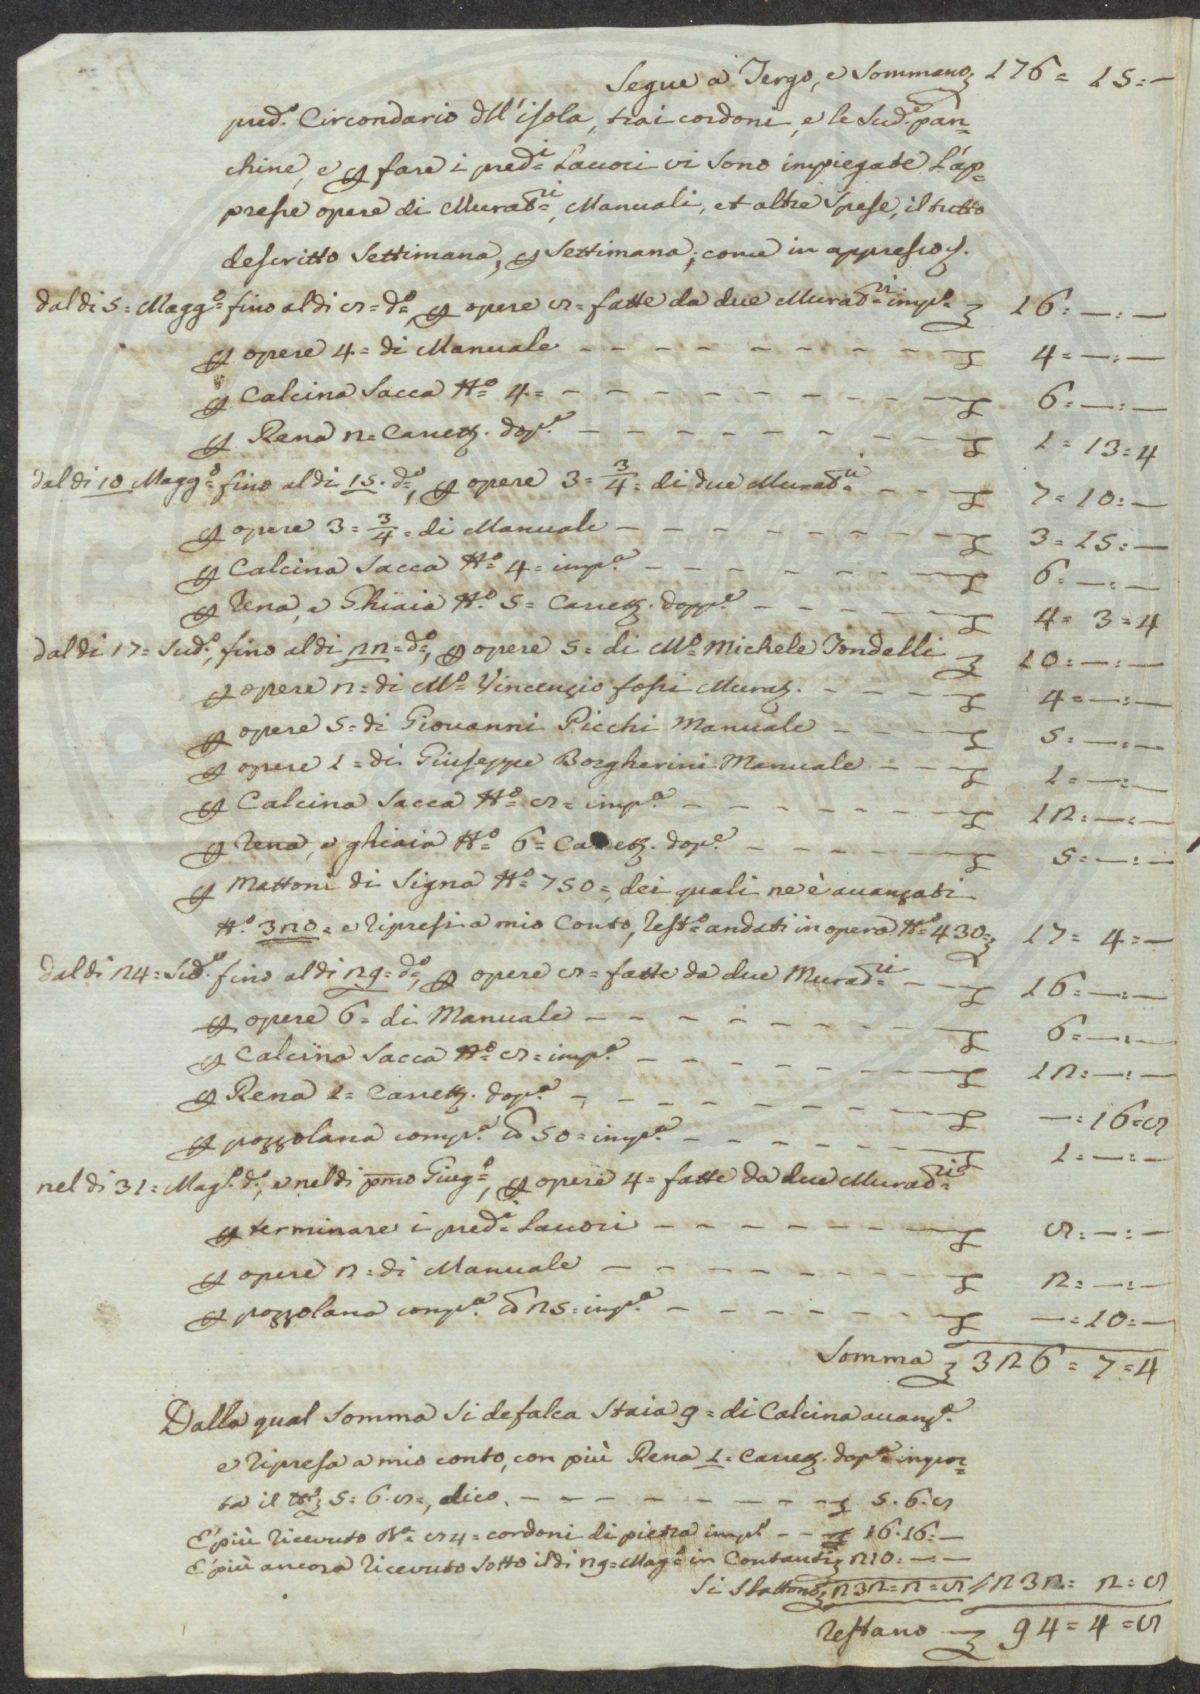 Segue a Tergo, e Sommano 176 = 15 : —
pred.º Circondario dll'isola, trai cordoni, e le Sud.e pan=
chine, e p fare i pred.i Lauori vi sono impiegate l'ap=
presse opere di Murat.ri, Manuali, et altre Spese, il tutto
descritto Settimana, p Settimana, come in appresso
dal di 5 = Magg.º fino al di 8 = d.º, p opere 8 = fatte da due Murat.ri imp.º 16 : — : —
p opere 4 = di Manuale 4 = — : —
p Calcina Sacca N.º 4 = 6 : — : —
p Rena 2 = Carrett. dop.e 1 = 13 = 4
dal di 10 Magg.º fino al di 15 . d.º, p opere 3 = 3/4 = di due Murat.ri 7 = 10 : —
p opere 3 = 3/4 = di Manuale 3 = 15 : —
p Calcina Sacca N.º 4 = imp.a 6 : — : —
p Rena, e Ghiaia N.º 5 = Carrett. dopp.e 4 = 3 = 4
dal di 17 = Sud.º, fino al di 22 = d.º, p opere 5 = di M.º Michele Tondelli 10 : — : —
p opere 2 = di M.º Vincenzio fossi Murat. 4 = — : —
p opere 5 = di Giouanni Picchi Manuale 5 : — : —
p opere 1 = di Giuseppe Borgherini Manuale 1 = — : —
p Calcina Sacca N.º 8 = imp.a 12 : — : —
p Rena, e ghiaia N.º 6 = Carrett. dop.e 5 = — : —
p Mattoni di Signa N.º 750 =, dei quali ne è auanzati
N.º 320 = e ripresi a mio Conto, rest.º andati in opera N.º 430 = 17 = 4 : —
dal di 24 = Sud.º fino al di 29 = d.º, p opere 8 = fatte da due Murat.ri 16 = — : —
p opere 6 = di Manuale 6 = — : —
p Calcina Sacca N.º 8 = imp.a 12 : — : —
p Rena 1 = Carrett. dop.a — : 16 = 8
p pozzolana comp.a 50 = imp.a 1 = — : —
nel di 31 = Mag.º d.º, e nel di pmo Giug.º, p opere 4 = fatte da due Murat.ri
p terminare i pred.i Lauori 8 : — : —
p opere 2 = di Manuale 2 = — : —
p pozzolana comp.a 25 = imp.a — = 10 = —
Somma 326 = 7 = 4
Dalla qual Somma Si defalca Staia 9 = di Calcina auanz.a
e ripresa a mio conto, con più Rena 1 = Carrett. dop.a impor=
ta il tt.º 5 = 6 . 8 =, dico 5 . 6 . 8
E' più riceuuto N.º 84 = cordoni di pietra imp.º 16 . 16 : —
E' più ancora riceuuto Sotto il di 29 = Mag.º in Contanti 210 : — : —
Si Sbattono 232 = 2 = 8 / 232 = 2 = 8
restano 94 = 4 = 8